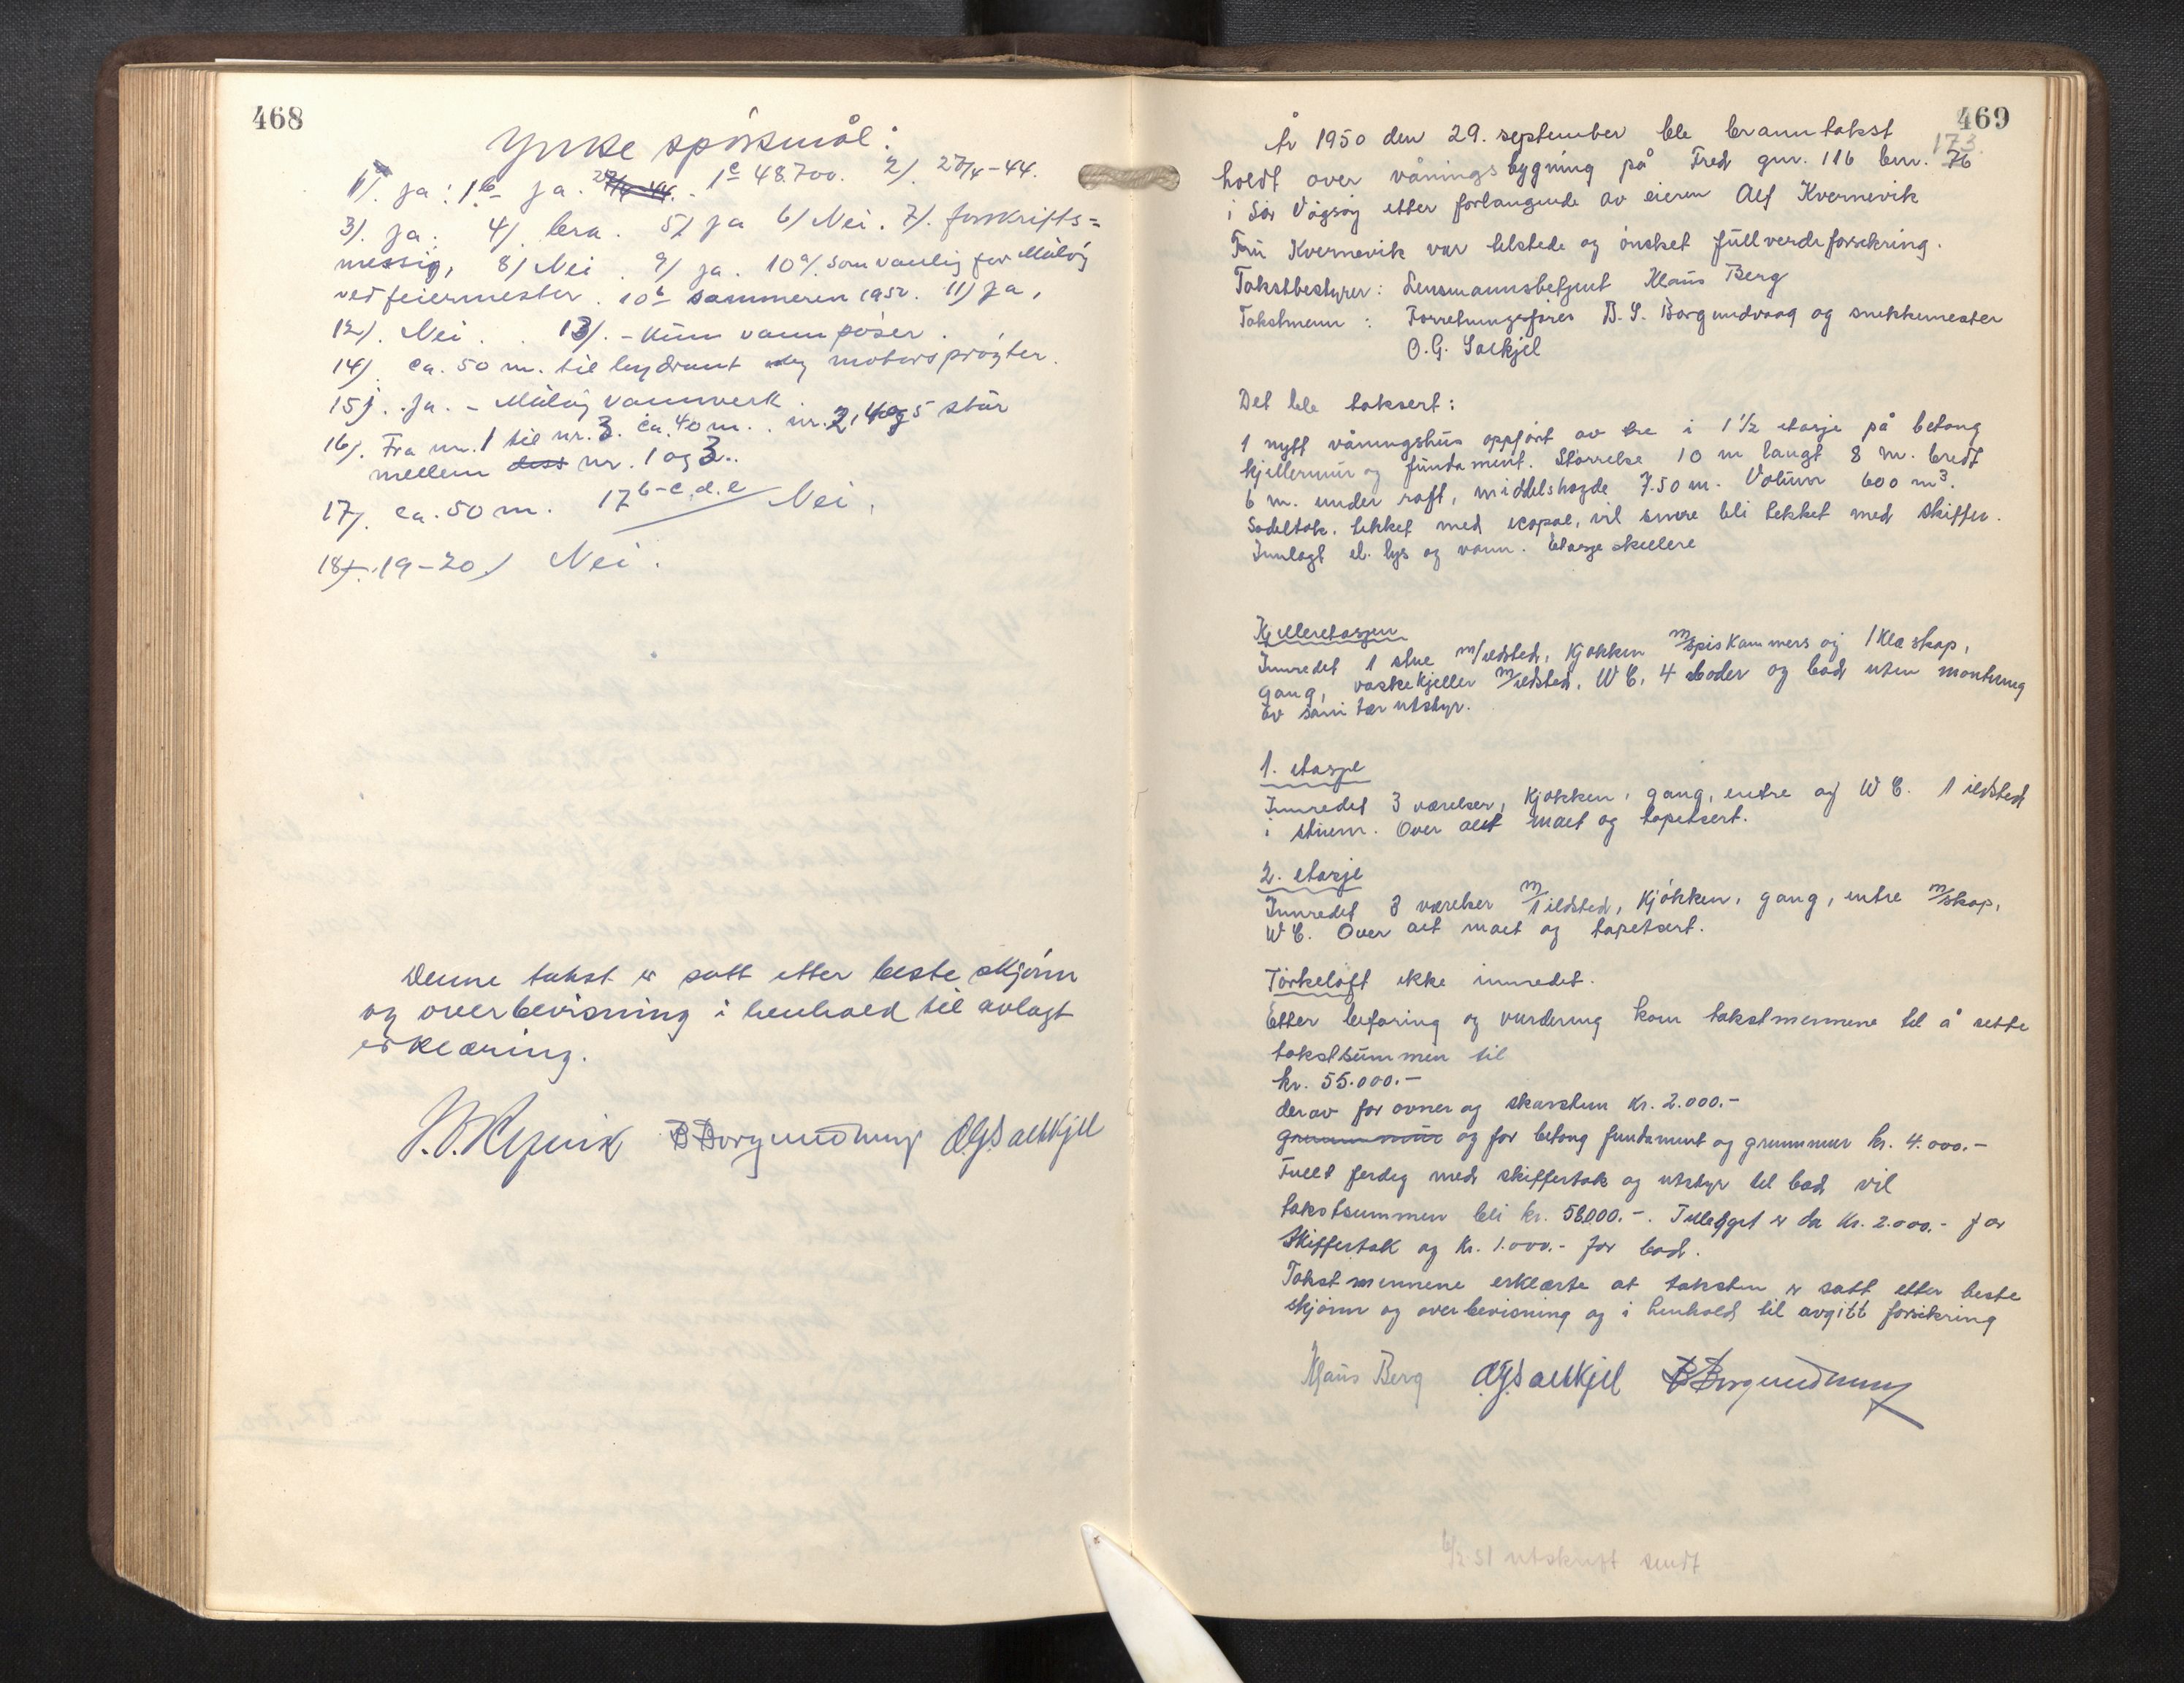 468
Ymse spörsmål:
1). ja: 1b ja. 27/4-44. - 1c 48.700. 2). 27/4-44.
3). ja: 4). bra. 5) ja 6) Nei. 7). forskrifts=
messig, 8) Nei. 9) ja. 10a). som vanlig for Måløy
ved feiermester. 10b sommeren 1950. 11) ja,
12). Nei. 13). - Kun vannpöser.
14). ca. 50 m. til hydrant og motorsprøyter.
15). ja. - Måløy vannverk.
16). Fra nr. 1 til nr. 3. ca. 40 m. nr. 2, 4 og 5 står
mellem dess nr. 1 og 3..
17). ca. 50 m. 17 b-c.d.e Nei.
18). 19-20) Nei.
Denne takst er satt etter beste skjönn
og overbevisning i henhold til avlagt
erklæring.
B Borgundvaag O.G. Saltkjel
469
År 1950 den 29. september ble branntakst
173.
holdt over våningsbygning på Tred gnr. 116 bnr. 76
i Sör Vågsöy etter forlangende av eieren Alf Kvernevik
Fru Kvernevik var tilstede og önsket fullverdiforsikring.
Takstbestyrer: Lensmannsbetjent Klaus Berg
Takstmenn: Forretningsförer B. S. Borgundvaag og snekkemester
O.G. Saltkjel
Det ble taksert:
1 nytt våningshus oppfört av tre i 1 1/2 etasje på betong
kjellermur og fundament. Störrelse 10 m langt 8 m. bredt
6 m. under raft, middelshøyde 7.50 m. Volum 600 m3.
Sadeltak, tekket med icopal, vil senere bli tekket med skiffer.
Innlagt el. lys og vann. Etasje skillere
Kjelleretasjen
Innredet 1 stue m/ildsted, kjøkken m/spiskammers og 1 kleskap,
gang, vaskekjeller m/ildsted, W C, 4 boder og bad uten montering
av sanitær utstyr.
1. etasje
Innredet 3 værelser, kjøkken, gang, entre og W C. 1 ildsted
i stuen. Over alt malt og tapetsert.
2. etasje
Innredet 3 værelser m/1 ildsted, kjökken, gang, entre m/skap,
W C. Over alt malt og tapetsert.
Törkeloft ikke innredet.
Etter befaring og vurdering kom takstmennene til å sette
takstsummen til
kr. 55.000.-
derav for ovner og skorsten kr. 2.000.-
grunnmur og for betong fundament og grunnmur kr. 4.000.-
Fullt ferdig med skiffertak og utstyr til bad vil
takstsummen bli kr. 58000.-. Tillegget er da kr. 2.000.- for
skiffertak og kr. 1.000.- for bad.
Takstmennene erklærte at taksten er satt etter beste
skjönn og overbevisning og i henhold til avgitt forsikring
Klaus Berg O.G. Saltkjel B Borgundvaag
6/2 51 utskrift sendt